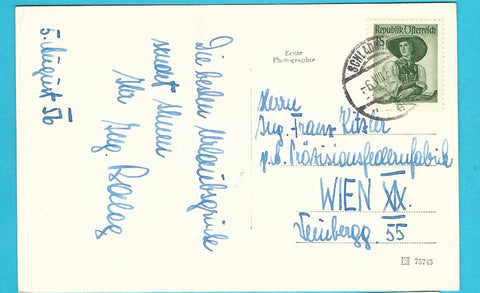 5. August 56
Die besten Urlaubsgrüße
sendet Ihnen
Ihr Ing. Balas
Echte
Photographie
Republik Österreich
SCHLADM
-6.VIII.5
Herrn
Ing. Franz Kitzler
p.A. Präzisionsfedernfabrik
WIEN XIX.
Weinbergg. 55
75745